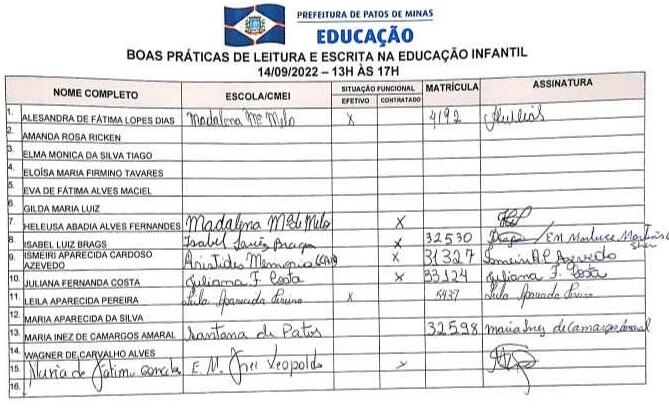 PREFEITURA DE PATOS DE MINAS
EDUCAÇÃO
BOAS PRÁTICAS DE LEITURA E ESCRITA NA EDUCAÇÃO INFANTIL
14/09/2022 – 13H ÀS 17H
NOME COMPLETO ESCOLA/CMEI SITUAÇÃO FUNCIONAL MATRÍCULA ASSINATURA
EFETIVO CONTRATADO
1. ALESANDRA DE FÁTIMA LOPES DIAS Madalena Mª Melo X 4192
2. AMANDA ROSA RICKEN
3. ELMA MONICA DA SILVA TIAGO
4. ELOÍSA MARIA FIRMINO TAVARES
5. EVA DE FÁTIMA ALVES MACIEL
6. GILDA MARIA LUIZ
7. HELEUSA ABADIA ALVES FERNANDES Madalena Mª de Melo X
8. ISABEL LUIZ BRAGS Isabel Braga X 32530 Braga / EM Marluce Martins
9. ISMEIRI APARECIDA CARDOSO AZEVEDO Aristides Memoria X 31327 Ismeiri AP. C. Azevedo
10. JULIANA FERNANDA COSTA Juliana F. Costa X 33124 Juliana F. Costa
11. LEILA APARECIDA PEREIRA Leila Aparecida Pereira X 5437 Leila Aparecida Pereira
12. MARIA APARECIDA DA SILVA
13. MARIA INEZ DE CAMARGOS AMARAL Santana de Patos 32598 Maria Inez de Camargos Amaral
14. WAGNER DE CARVALHO ALVES
15. Maria de Fátima E. M. Frei Leopoldo X
16.